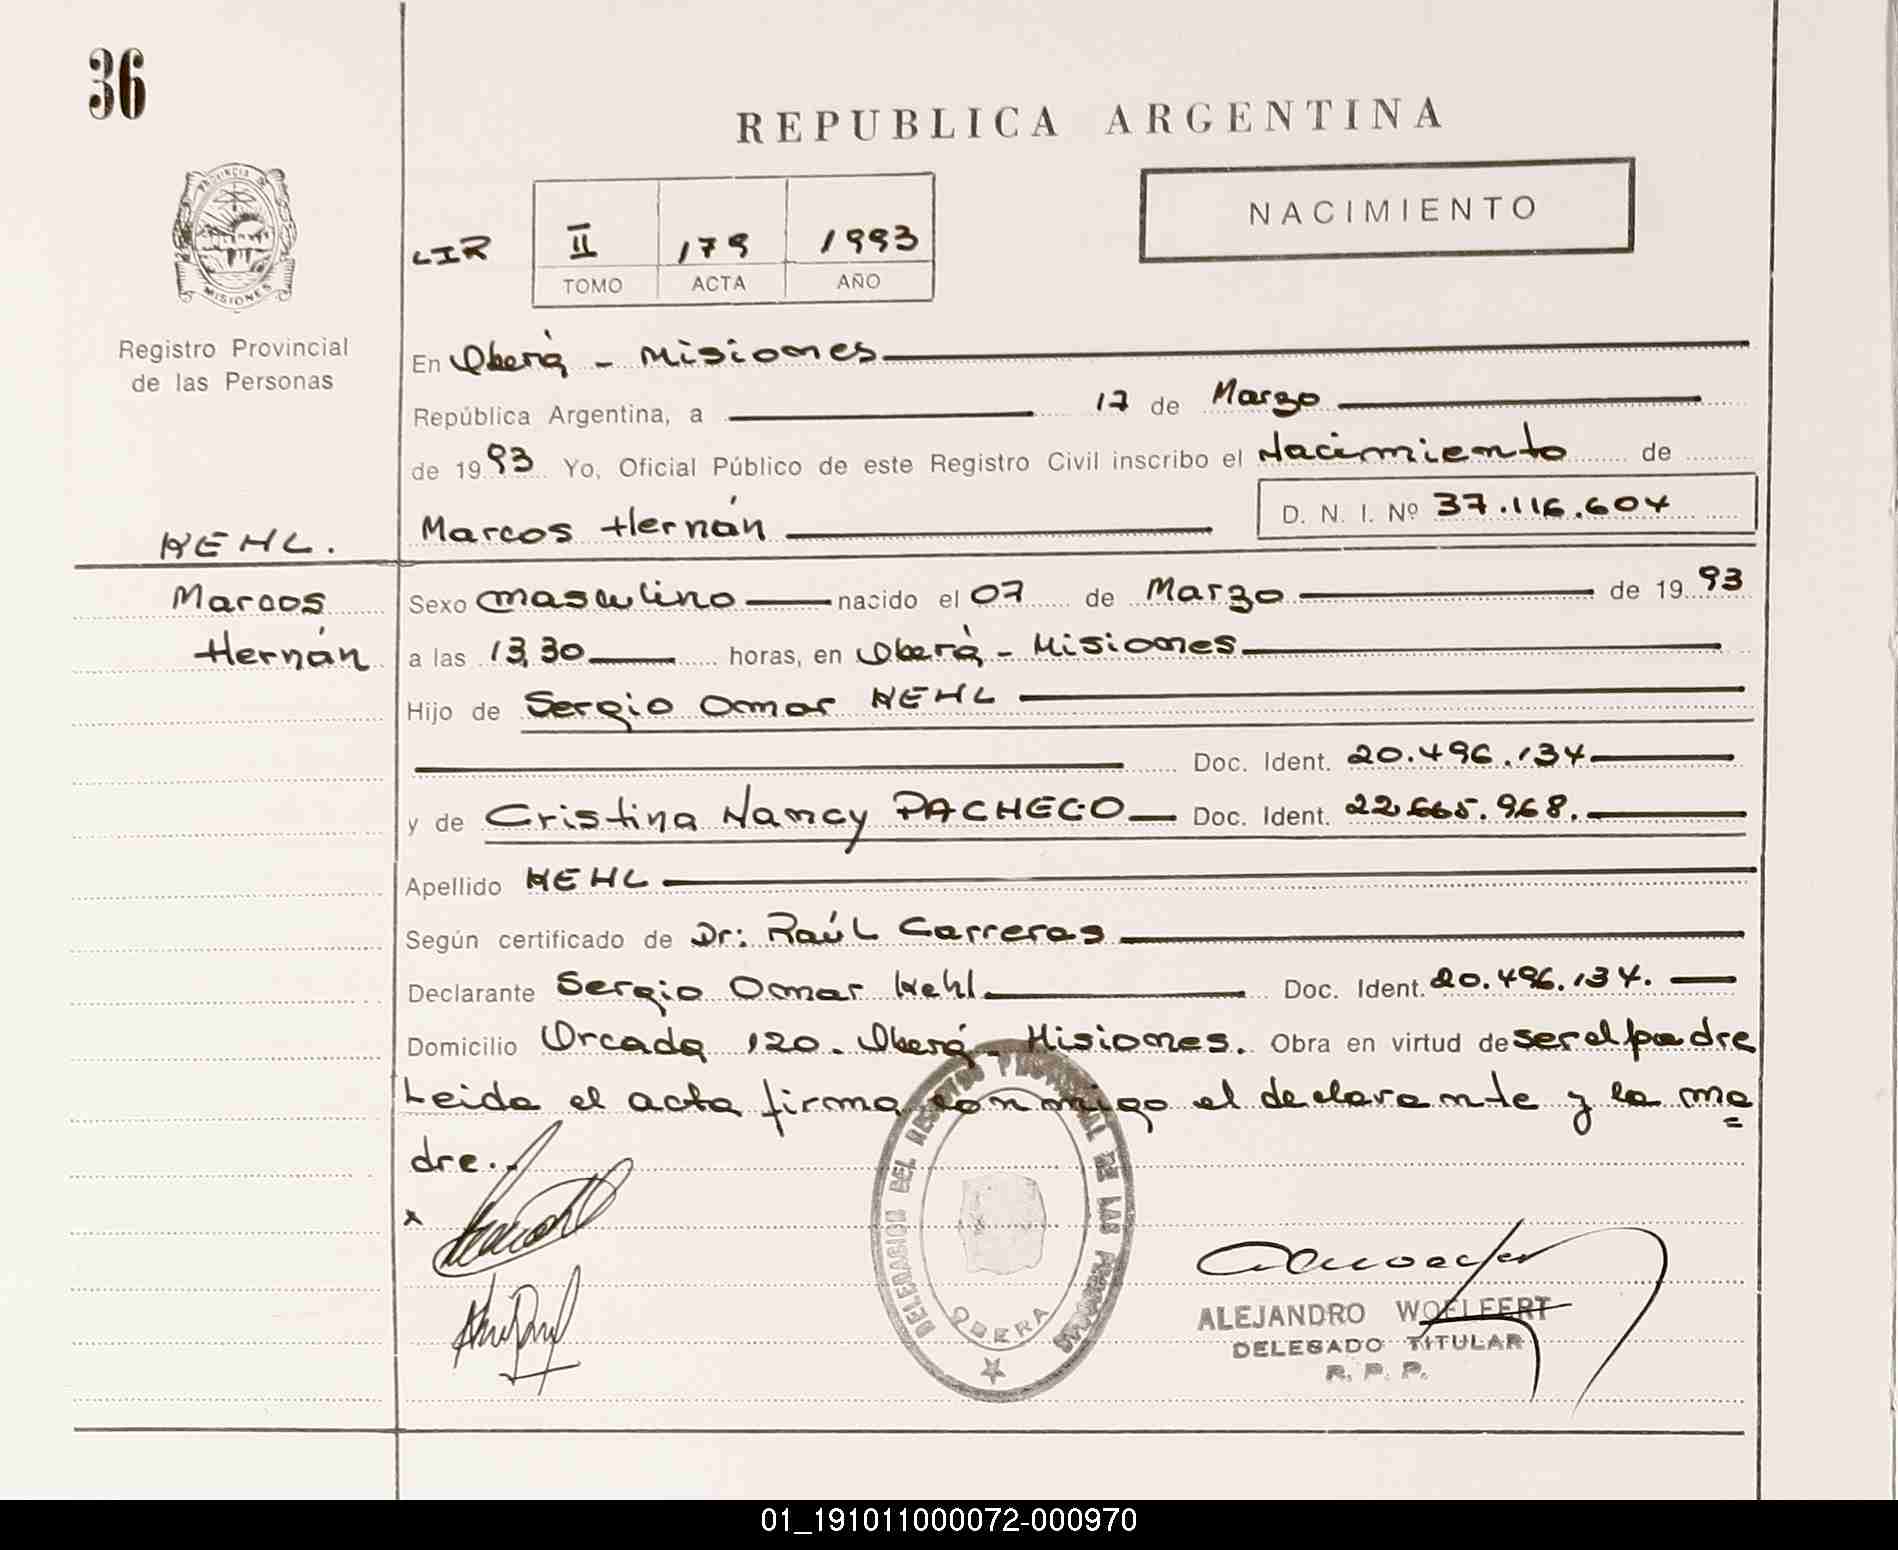 36
REPUBLICA ARGENTINA
NACIMIENTO
LIR II 179 1993
TOMO ACTA AÑO
PROVINCIA DE MISIONES
Registro Provincial
de las Personas
En Oberá - Misiones
República Argentina, a 17 de Marzo
de 1993 Yo, Oficial Público de este Registro Civil inscribo el Nacimiento de
Marcos Hernán D. N. I. Nº 37.116.604
KEHL.
Marcos
Hernán
Sexo masculino nacido el 07 de Marzo de 1993
a las 13,30 horas, en Oberá - Misiones
Hijo de Sergio Omar KEHL
Doc. Ident. 20.496.134
y de Cristina Nancy PACHECO Doc. Ident. 22.665.968.
Apellido KEHL
Según certificado de Dr: Raúl Carreras
Declarante Sergio Omar Kehl Doc. Ident. 20.496.134.
Domicilio Orcada 120. Oberá - Misiones. Obra en virtud de ser el padre
Leida el acta firma conmigo el declarante y la ma
dre.
x
DELEGACION DEL REGISTRO PROVINCIAL DE LAS PERSONAS
OBERA
ALEJANDRO WOELFERT
DELEGADO TITULAR
R. P. P.
01_191011000072-000970